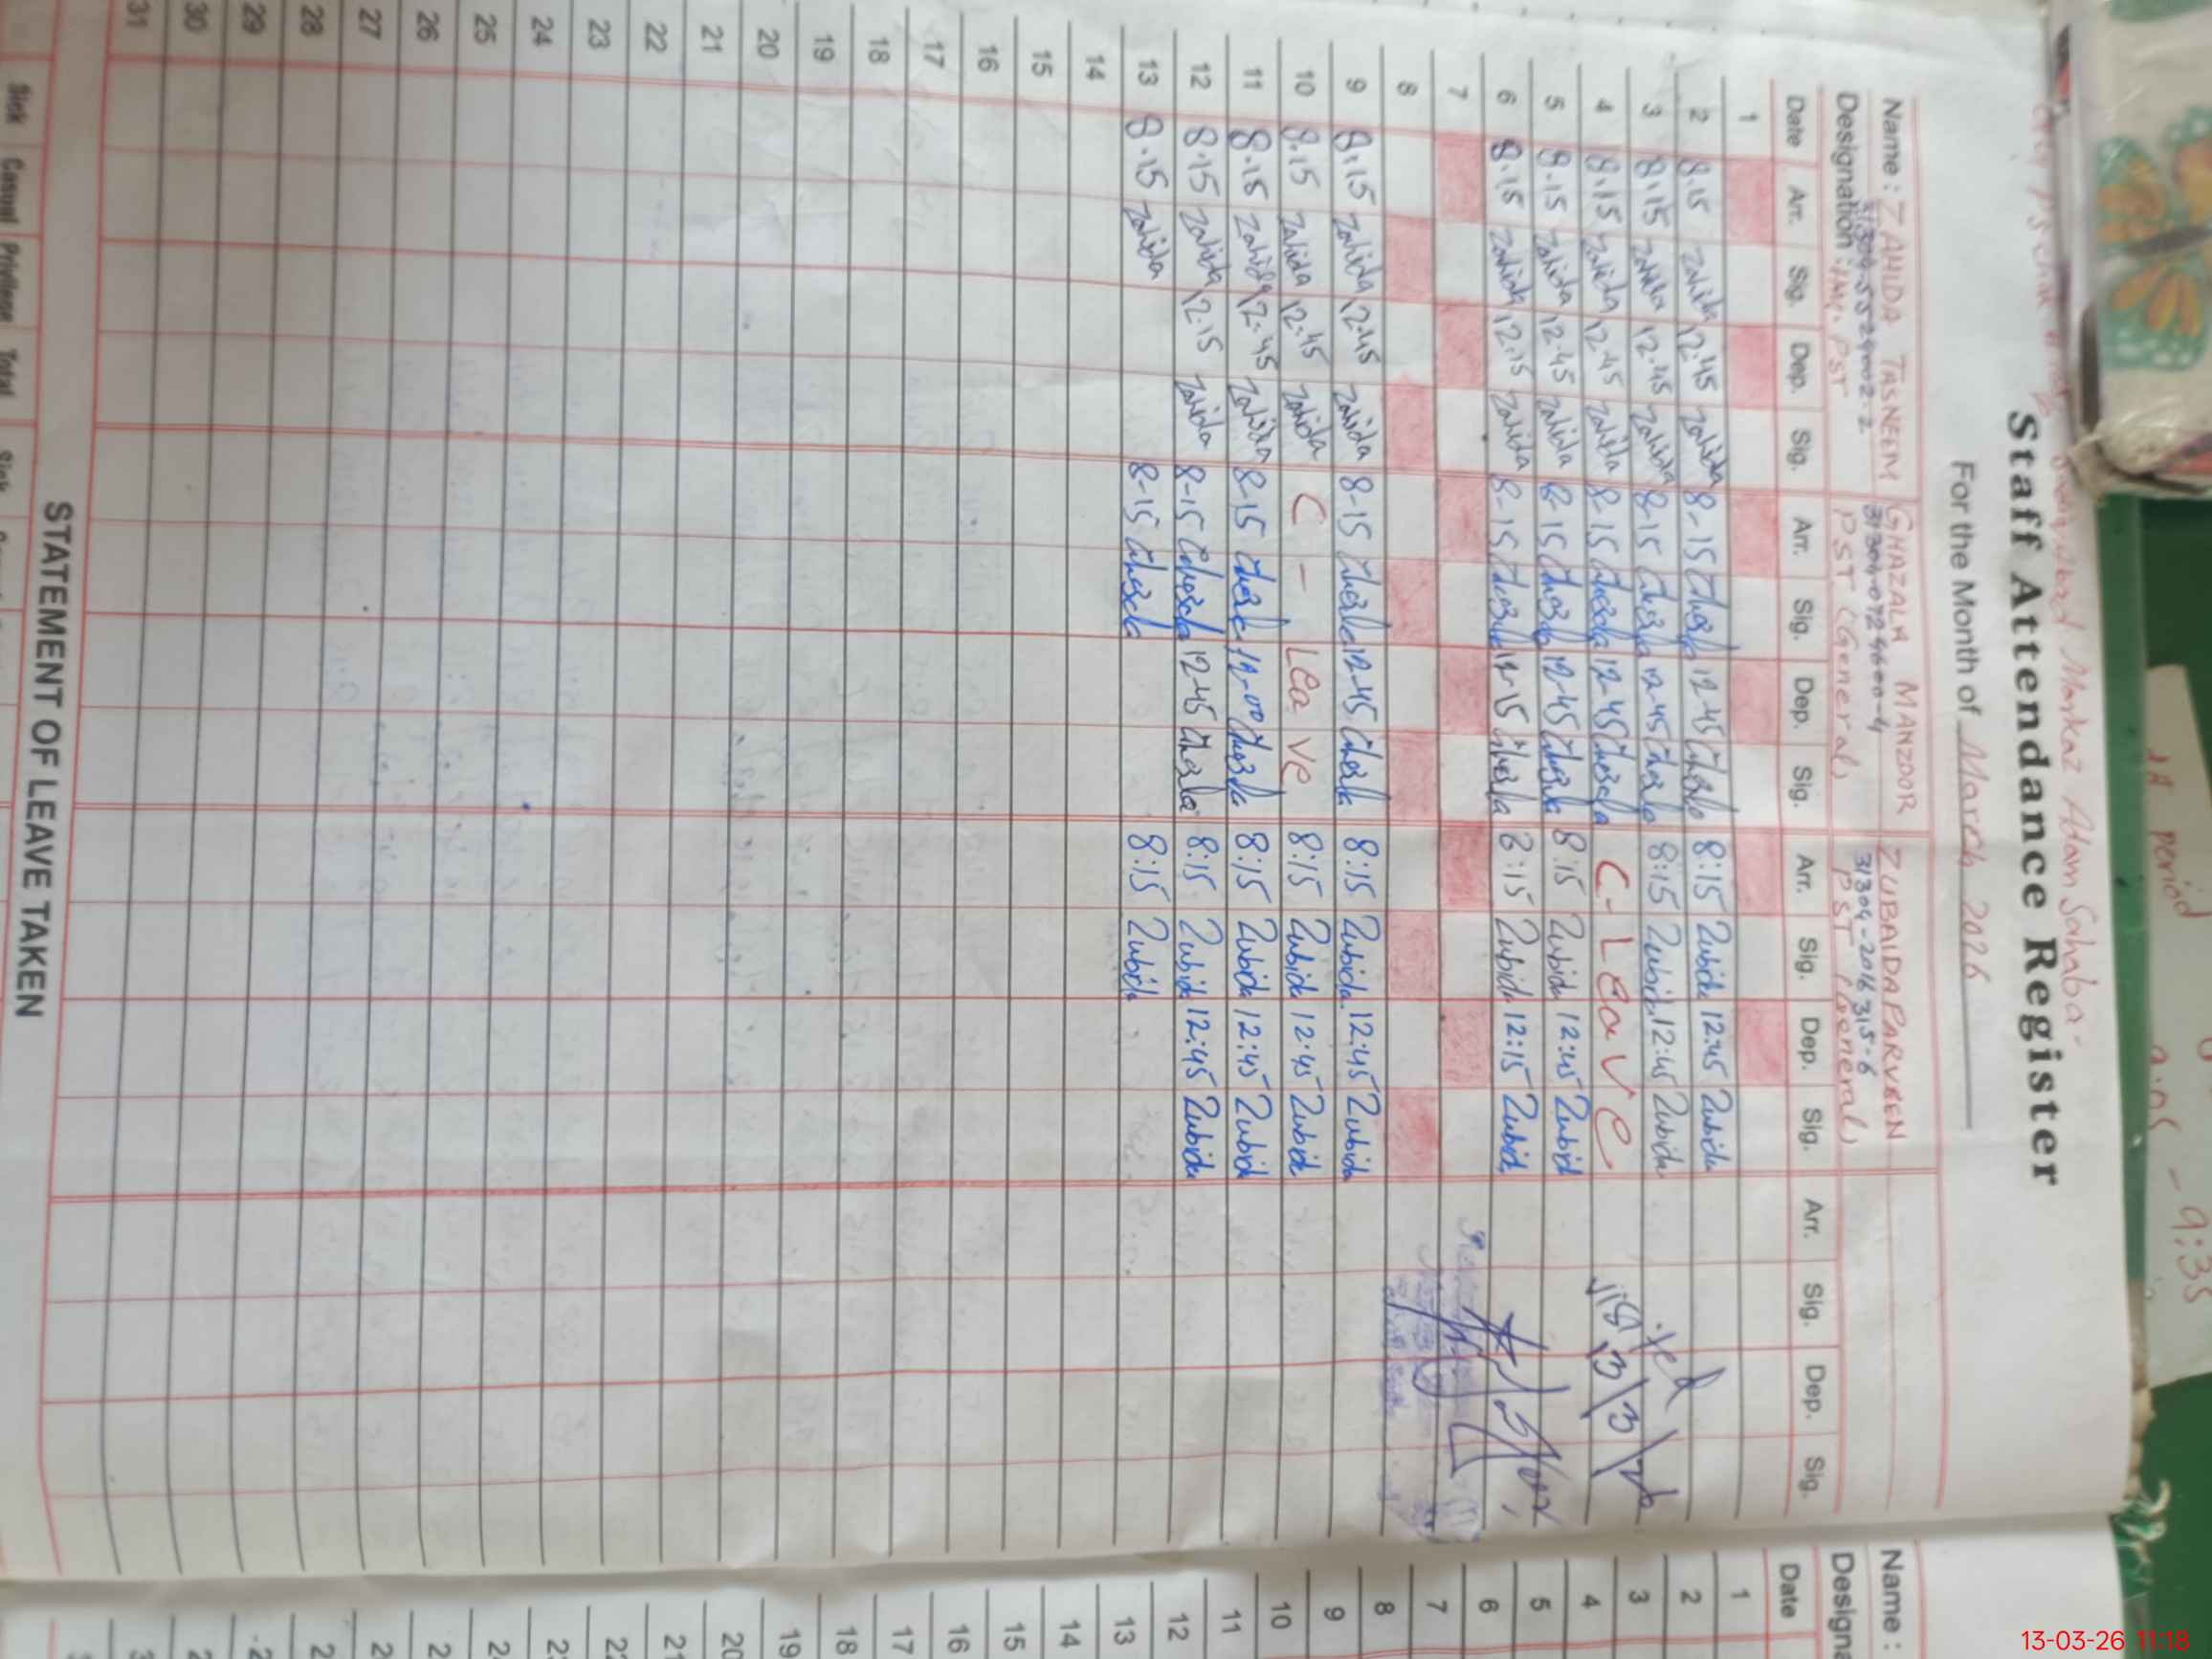 Markaz Adam Sahaba-
Staff Attendance Register
For the Month of March 2026
Name : ZAHIDA TASNEEM GHAZALA MANZOOR ZUBAIDA PARVEEN
31304-2016315-6
Designation : PST PST (General) PST (General)
Date Arr. Sig. Dep. Sig. Arr. Sig. Dep. Sig. Arr. Sig. Dep. Sig. Arr. Sig. Dep. Sig.
1
2 8.15 Zahida 12:45 Zahida 8-15 Ghazala 12-45 Ghazala 8:15 Zubida 12:45 Zubida
3 8.15 Zahida 12.45 Zahida 8-15 Ghazala 12-45 Ghazala 8:15 Zubida 12:45 Zubida
4 8.15 Zahida 12.45 Zahida 8-15 Ghazala 12-45 Ghazala C-Leave
5 8.15 Zahida 12.45 Zahida 8-15 Ghazala 12-45 Ghazala 8:15 Zubida 12:45 Zubida
6 8.15 Zahida 12.15 Zahida 8-15 Ghazala 12-15 Ghazala 8:15 Zubida 12:15 Zubida
7
8
9 8.15 Zahida 12.45 Zahida 8-15 Ghazala 12-45 Ghazala 8:15 Zubida 12:45 Zubida
10 8.15 Zahida 12.45 Zahida C-Leave 8:15 Zubida 12:45 Zubida
11 8.15 Zahida 12.45 Zahida 8-15 Ghazala 12-00 Ghazala 8:15 Zubida 12:45 Zubida
12 8.15 Zahida 12.15 Zahida 8-15 Ghazala 12-45 Ghazala 8:15 Zubida 12:45 Zubida
13 8.15 Zahida 8-15 Ghazala 8:15 Zubida
14
15
16
17
18
19
20
21
22
23
24
25
26
27
28
29
30
31
STATEMENT OF LEAVE TAKEN
Sick Casual Privilege Total Sick
Name :
Designa
Date
1
2
3
4
5
6
7
8
9
10
11
12
13
14
15
16
17
18
19
20
period
9:05 - 9:35
13-03-26 11:18